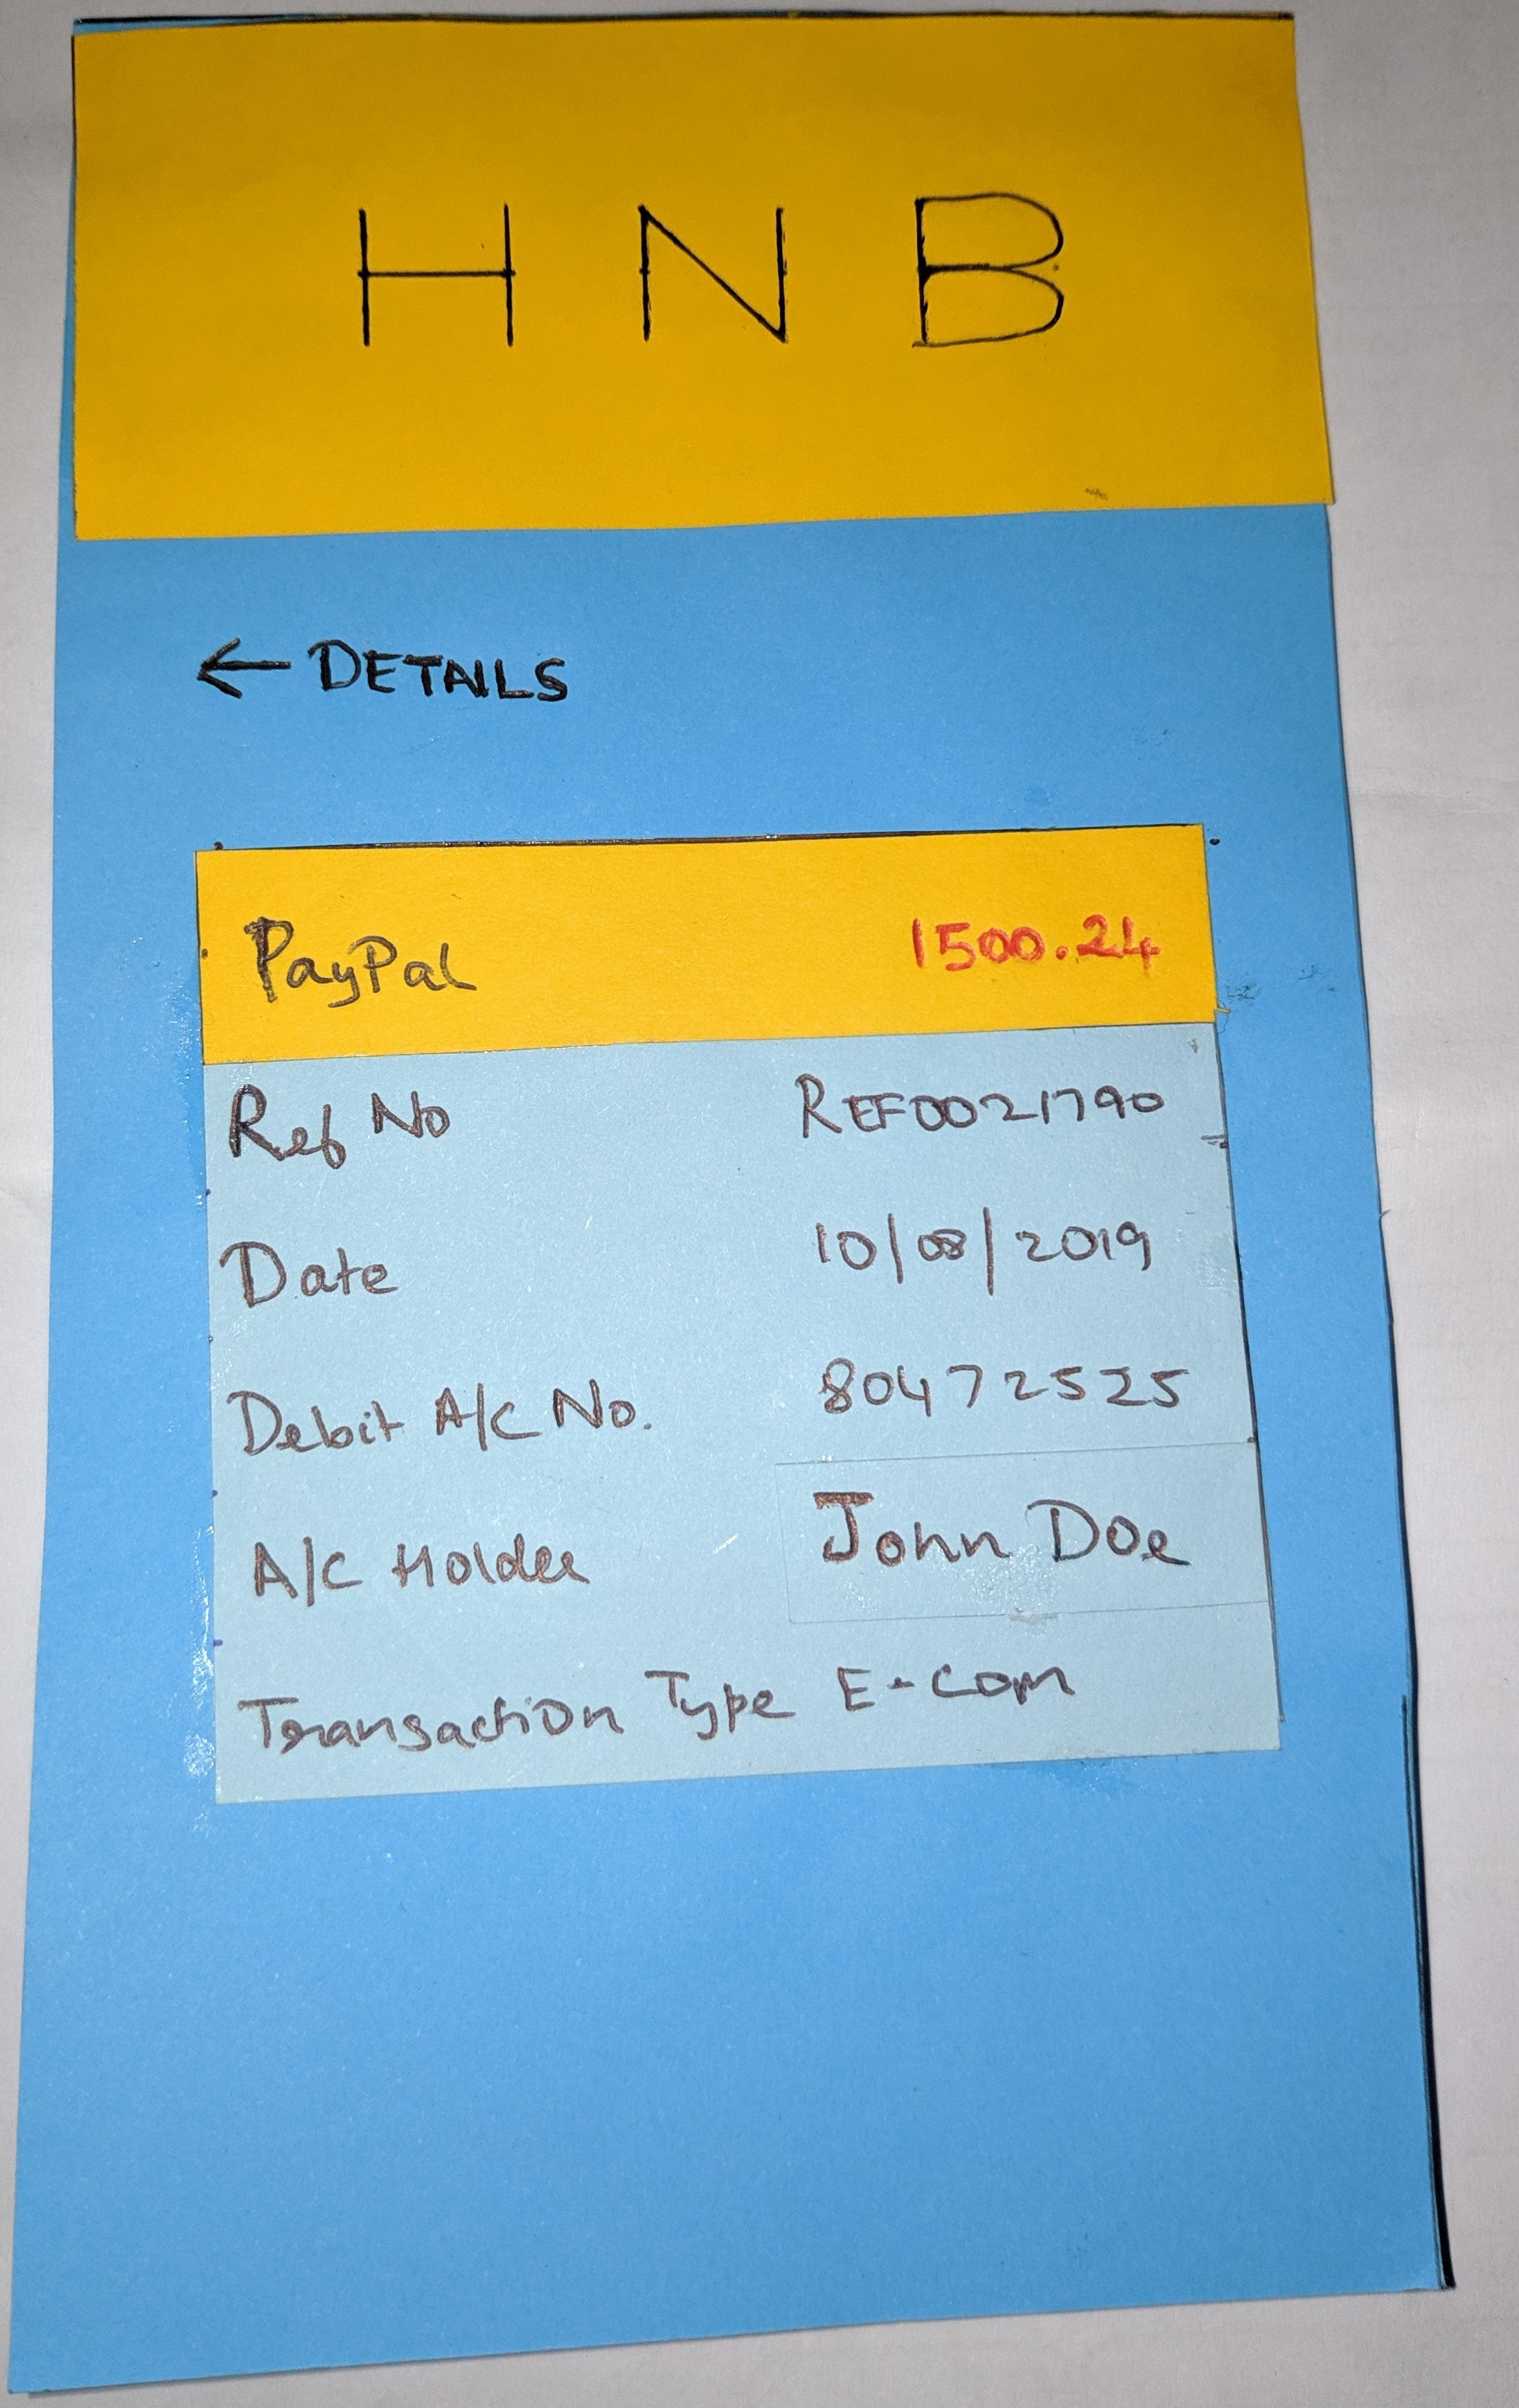 H N B
← DETAILS
PayPal 1500.24
Ref No REF0021790
Date 10/08/2019
Debit A/C No. 80472525
A/C Holder John Doe
Transaction Type E-com